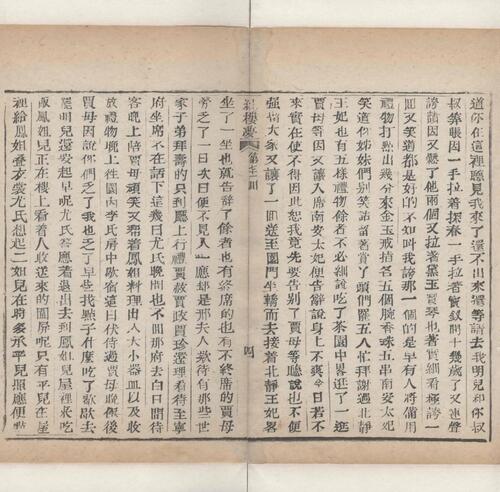 道你在這裡聽見我來了還不出來還等請去我明兒和你叔
叔算賬因一手拉着探春一手拉着寶釵問十幾歲了又連聲
誇讚因又鬆了他兩個又拉着黛玉寶琴也着實細看極誇一
回又笑道都是好的不知叫我誇那一個的是早有人將備用
禮物打點出幾分來金玉戒指各五個腕香珠五串南安太妃
笑道你姊妹們別笑話留着賞丫頭們罷五人忙拜謝過北靜
王妃也有五樣禮物餘者不必細說吃了茶園中畧逛了一逛
賈母等因又讓入席南安太妃便告辭說身上不爽今日若不
來實在使不得因此恕我竟先要告别了賈母等聽說也不便
强留大家又讓了一回送至園門坐轎而去接着北靜王妃畧
紅樓夢 第七十一回 四
坐了一坐也就告辞了餘者也有終席的也有不終席的賈母
勞乏了一日次日便不見人一應都是邢夫人欵待有那些世
家子弟拜壽的只到廳上行禮賈赦賈政賈珍還理看待至寧
府坐席不在話下這幾日尤氏晚間也不回那府去白日間待
客晚上陪賈母頑笑又幫着鳳姐料理出入大小器皿以及收
放禮物晚上往園內李氏房中歇宿這日伏侍過賈母晚飯後
賈母因說你們乏了我也乏了早些找點子什麼吃了歇歇去
罷明兒還要起早呢尤氏答應着退出去到鳳姐兒屋裡來吃
飯鳳姐兒正在樓上看着人收送來的圍屏呢只有平兒在屋
裡給鳳姐疊衣裳尤氏想起二姐兒在時多承平兒照應便點